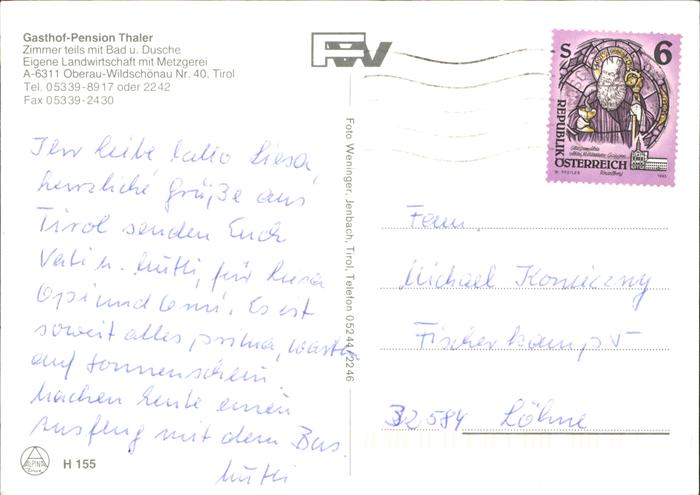 Gasthof-Pension Thaler
Zimmer teils mit Bad u. Dusche
Eigene Landwirtschaft mit Metzgerei
A-6311 Oberau-Wildschönau Nr. 40, Tirol
Tel. 05339-8917 oder 2242
Fax 05339-2430
S 6
REPUBLIK
ÖSTERREICH
1993
Ihr
herzliche Grüße aus
Tirol senden Euch
Vati u. Mutti, für
Opi und Omi. Es ist
soweit alles prima, warten
auf Sonnenschein.
Machen heute einen
Ausflug mit dem Bus.
Mutti
Foto Weninger, Jenbach, Tirol, Telefon 05244/2246
Fam.
Michael
32584 Löhne
ALPINA
H 155